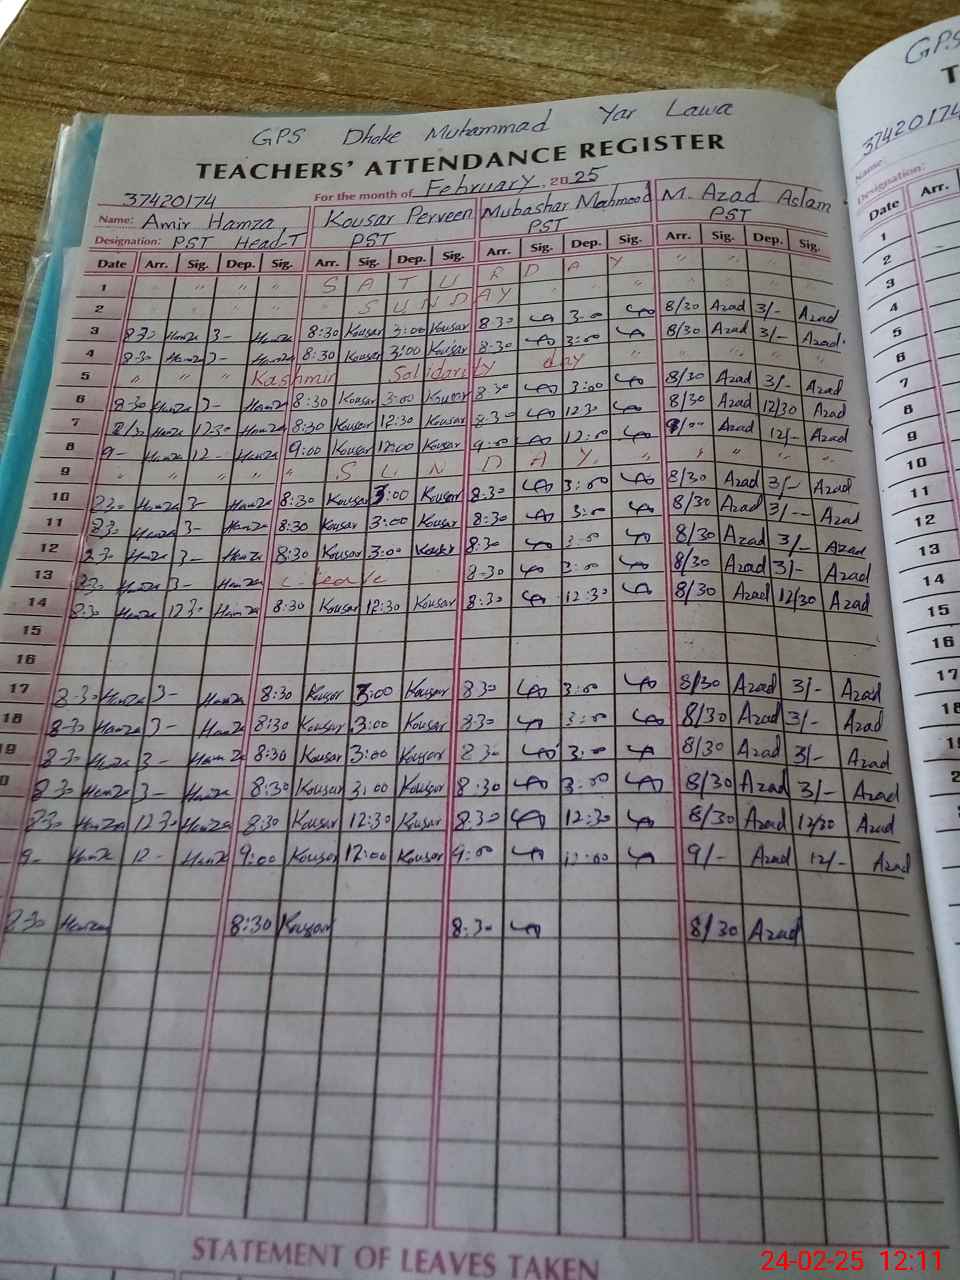 GPS Dhoke Muhammad Yar Lawa
TEACHERS' ATTENDANCE REGISTER
37420174 For the month of February, 2025
Name: Amir Hamza Kousar Perveen Mubashar Mahmood M. Azad Aslam
Designation: PST Head-T PST PST PST
Date Arr. Sig. Dep. Sig. Arr. Sig. Dep. Sig. Arr. Sig. Dep. Sig. Arr. Sig. Dep. Sig.
1 " " " " SATURDAY " " " "
2 SUNDAY
3 8:30 Hamza 3- Hamza 8:30 Kousar 3:00 Kousar 8:30 3:00 8/30 Azad 3/- Azad
4 8:30 Hamza 3- Hamza 8:30 Kousar 3:00 Kousar 8:30 3:00 8/30 Azad 3/- Azad
5 " " " Kashmir Solidarity day " " " "
6 8:30 Hamza 3- Hamza 8:30 Kousar 3:00 Kousar 8:30 3:00 8/30 Azad 3/- Azad
7 8/30 Hamza 12:30 Hamza 8:30 Kousar 12:30 Kousar 8:30 12:30 8/30 Azad 12/30 Azad
8 9- Hamza 12- Hamza 9:00 Kousar 12:00 Kousar 9:00 12:00 Azad 12/- Azad
9 " " " " " SUNDAY. " " " " "
10 8:30 Hamza 3- Hamza 8:30 Kousar 3:00 Kousar 8:30 3:00 8/30 Azad 3/- Azad
11 8:30 Hamza 3- Hamza 8:30 Kousar 3:00 Kousar 8:30 3:00 8/30 Azad 3/- Azad
12 8:30 Hamza 3- Hamza 8:30 Kousar 3:00 Kousar 8:30 3:00 8/30 Azad 3/- Azad
13 8:30 Hamza 3- Hamza C-leave 8:30 3:00 8/30 Azad 3/- Azad
14 8:30 Hamza 12:30 Hamza 8:30 Kousar 12:30 Kousar 8:30 12:30 8/30 Azad 12/30 Azad
15
16
17 8:30 Hamza 3- Hamza 8:30 Kousar 3:00 Kousar 8:30 3:00 8/30 Azad 3/- Azad
18 8:30 Hamza 3- Hamza 8:30 Kousar 3:00 Kousar 8:30 3:00 8/30 Azad 3/- Azad
19 8:30 Hamza 3- Hamza 8:30 Kousar 3:00 Kousar 8:30 3:00 8/30 Azad 3/- Azad
0 8:30 Hamza 3- Hamza 8:30 Kousar 3:00 Kousar 8:30 3:00 8/30 Azad 3/- Azad
8:30 Hamza 12:30 Hamza 8:30 Kousar 12:30 Kousar 8:30 12:30 8/30 Azad 12/30 Azad
9- Hamza 12- Hamza 9:00 Kousar 12:00 Kousar 9:00 12:00 9/- Azad 12/- Azad
8:30 Hamza 8:30 Kousar 8:30 8/30 Azad
STATEMENT OF LEAVES TAKEN
GPS
T
37420174
Name:
Designation:
Date Arr.
1
2
3
4
5
6
7
8
9
10
11
12
13
14
15
16
17
18
1
2
24-02-25 12:11